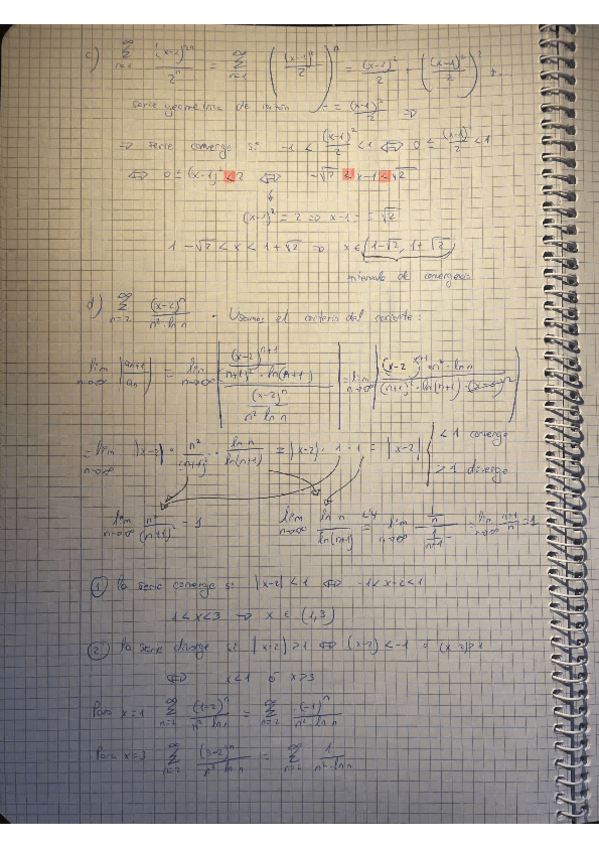 c) ∞ Σ n=1 (x-1)^2n / 2^n = ∞ Σ n=1 ((x-1)^2 / 2)^n = (x-1)^2 / 2 + ((x-1)^2 / 2)^2 + ...
serie geométrica de razón r = (x-1)^2 / 2 ⇒
⇒ serie converge si -1 < (x-1)^2 / 2 < 1 ⇔ 0 ≤ (x-1)^2 / 2 < 1
⇔ 0 ≤ (x-1)^2 < 2 ⇔ -√2 < x-1 < √2
↓
(x-1)^2 = 2 ⇒ x-1 = ±√2
1-√2 < x < 1+√2 ⇒ x ∈ (1-√2, 1+√2)
intervalo de convergencia
d) ∞ Σ n=2 (x-2)^n / n^2 · ln n · Usamos el criterio del cociente:
lim n→∞ |an+1 / an| = lim n→∞ |(x-2)^n+1 / (n+1)^2 · ln(n+1) / (x-2)^n / n^2 ln n| = lim n→∞ |(x-2)^n+1 · n^2 · ln n / (n+1)^2 · ln(n+1) · (x-2)^n|
= lim n→∞ |x-2| · n^2 / (n+1)^2 · ln n / ln(n+1) = |x-2| · 1 · 1 = |x-2| { < 1 converge
> 1 diverge
lim n→∞ n^2 / (n+1)^2 = 1 lim n→∞ ln n / ln(n+1) = lim n→∞ 1/n / 1/n+1 = lim n→∞ n+1 / n = 1
① la serie converge si |x-2| < 1 ⇔ -1 < x-2 < 1
1 < x < 3 ⇒ x ∈ (1,3)
② la serie diverge si |x-2| > 1 ⇔ (x-2) < -1 ó (x-2) > 1
⇔ x < 1 ó x > 3
Para x=1 ∞ Σ n=2 (1-2)^n / n^2 · ln n = ∞ Σ n=2 (-1)^n / n^2 · ln n
Para x=3 ∞ Σ n=2 (3-2)^n / n^2 · ln n = ∞ Σ n=2 1 / n^2 · ln n